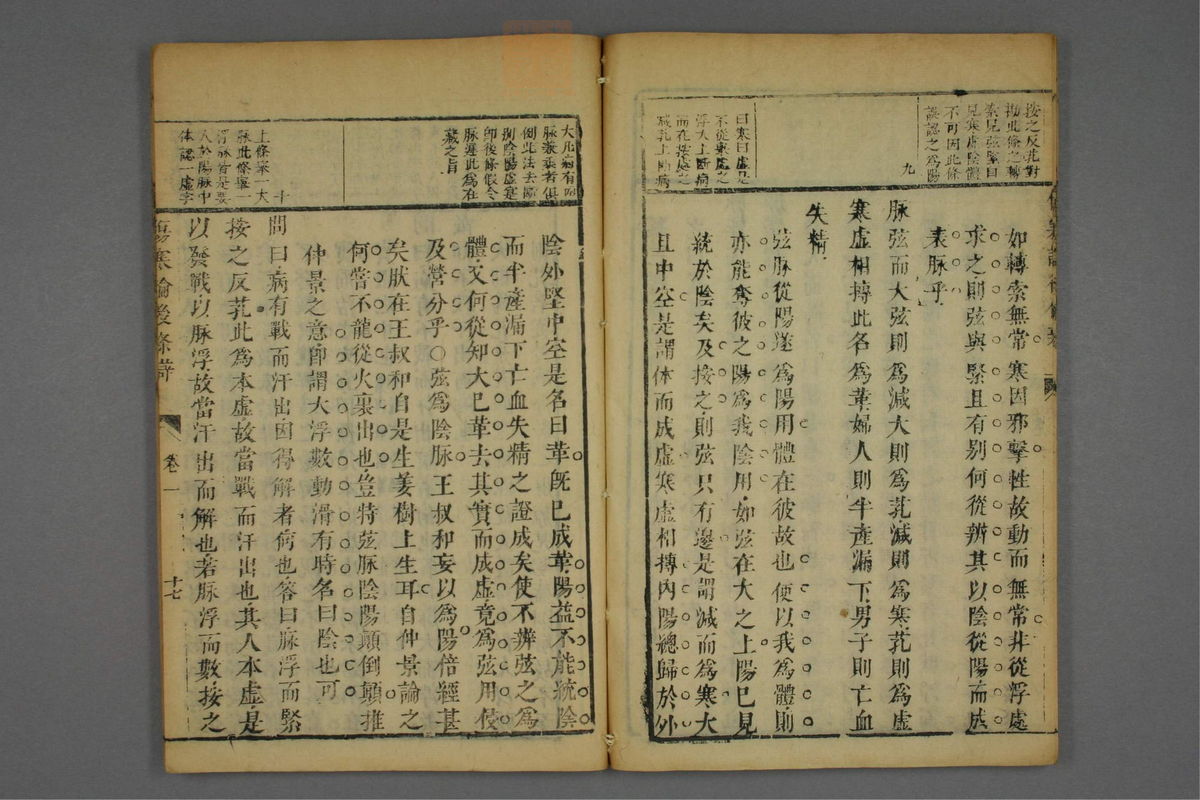 按之反芤對
勘此條之轉
索見弦緊自
見寒虛陰體
不可因此條
誤認之為陽
九
曰寒曰虛是
不從秉處之
浮大上斷病
而在按處之
減芤上斷病
如轉索無常寒因邪擊牲故動而無常非從浮處
求之則弦與緊且有别何從辨其以陰從陽而成
表脉乎
脉弦而大弦則爲減大則爲芤減則爲寒芤則爲虛
寒虛相摶此名爲革婦人則半產漏下男子則亡血
失精
弦脉從陽遂爲陽用體在彼故也便以我爲體則
亦能奪彼之陽爲我陰用如弦在大之上陽已見
統於陰矣及按之則弦只有邊是謂減而爲寒大
且中空是謂体而成虛寒虛相摶內陽總歸於外
大凡病有兩
脉激裹者俱
倒此法去斷
別陰陽虛寔
師後條假令
脉遲此爲在
藏之旨
十
上條寨一大
脉此條舉一
浮脉皆是要
人於陽脉中
体認一虛字
陰外堅中空是名曰革旣已成革陽益不能統陰
而半產漏下亡血失精之證成矣使不辨弦之爲
體又何從知大已革去其實而成虛竟爲弦用侵
及營分乎○弦爲陰脉王叔和妄以爲陽倍經甚
矣肰在王叔和自是生姜樹上生耳自仲景論之
何嘗不龍從火裏出也豈特弦脉陰陽顛倒顛推
仲景之意卽謂大浮數動滑有時名曰陰也可
問曰病有戰而汗出因得解者何也答曰脉浮而緊
按之反芤此爲本虛故當戰而汗出也其人本虛是
以發戰以脉浮故當汗出而解也若脉浮而數按之
傷寒論後條辨
卷一
十七